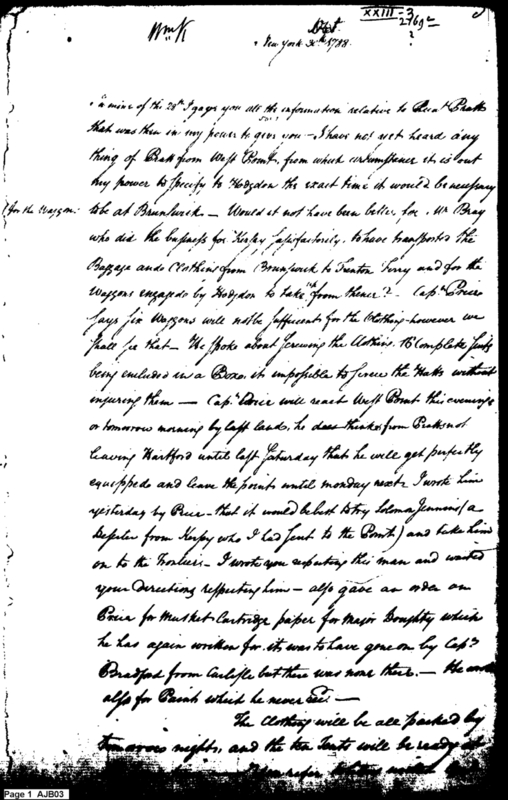 XXIII-3
Wm K
New York 30th 1788
?
a mine of the 28th I gave you all the information relative to Lieut Pratt
that was then in my power to give you - I have not yet heard any
thing of Pratt from West Point, from which circumstance it is out
my power to specify to Hodgdon the exact time it would be necessary
(for the Waggons) to be at Brunswick - Would it not have been better, for Mr Bray
who did the business for Kersey satisfactorily, to have transported the
Baggage and Clothing from Brunswick to Trenton Ferry and for the
Waggons engaged by Hodgdon to take it from thence? - Capt Price
says six Waggons will not be sufficient for the Clothing - however we
shall see that - He spoke about screwing the Clothing, 15 Complete Suits
being included in a Box, it impossible to screw the Hatts without
injuring them - Capt Price will reach West Point this evening
or tomorrow morning by last lands, he does think from Pratts not
leaving Hartford until last Saturday that he will get perfectly
equipped and leave the point until monday next. I wrote him
yesterday by Price - that it would be best to try Solomon Jennins (a
Deserter from Kersey who I had sent to the Point) and take him
on to the Frontiers - I wrote you respecting this man and wanted
your directions respecting him - also gave an order on
Price for Musket Cartridge paper for Major Doughty which
he has again written for. it was to have gone on by Capt
Bradford from Carlisle but there was none there. - He
also for Paint which he never
The Clothing will be all packed by
tomorrow night, and the ten Tents will be ready
Page 1 AJB03